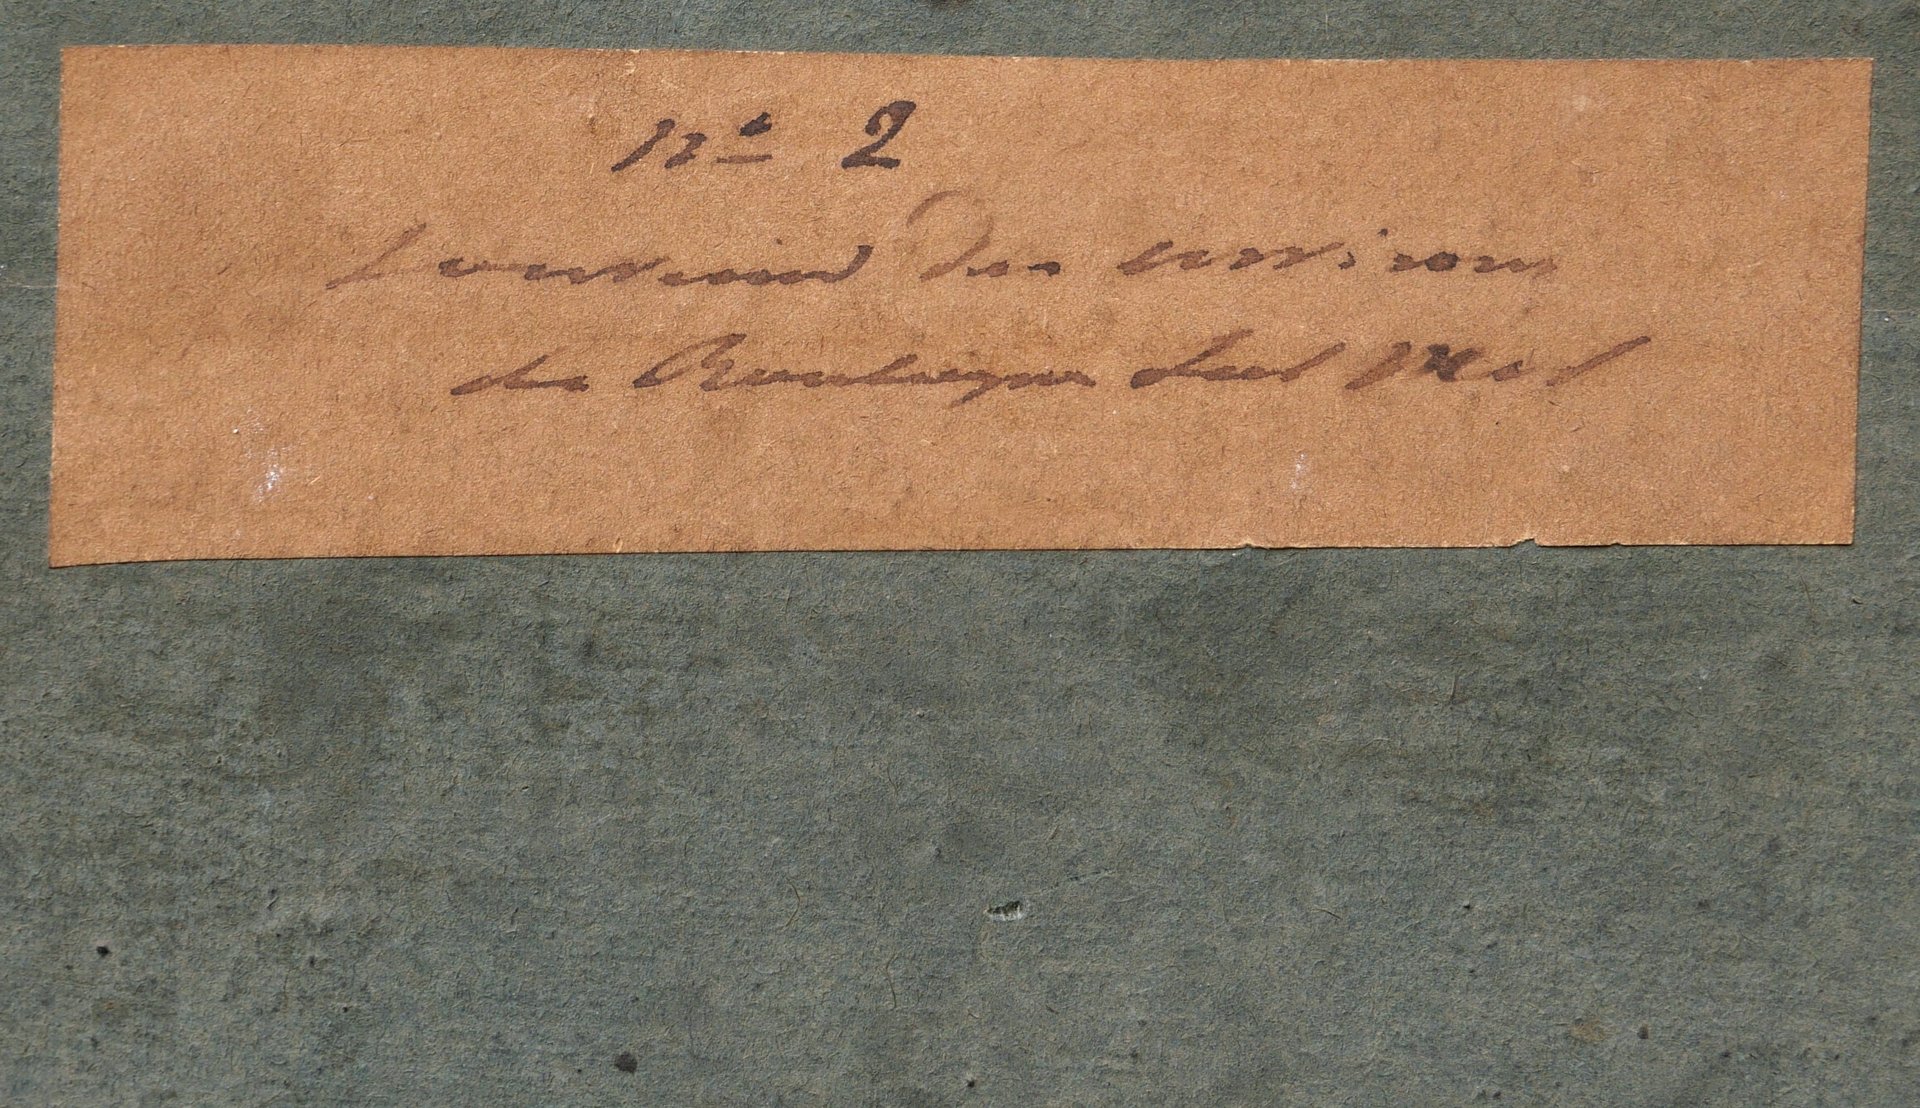 n° 2
souvenir des environs
de Boulogne sur Mer